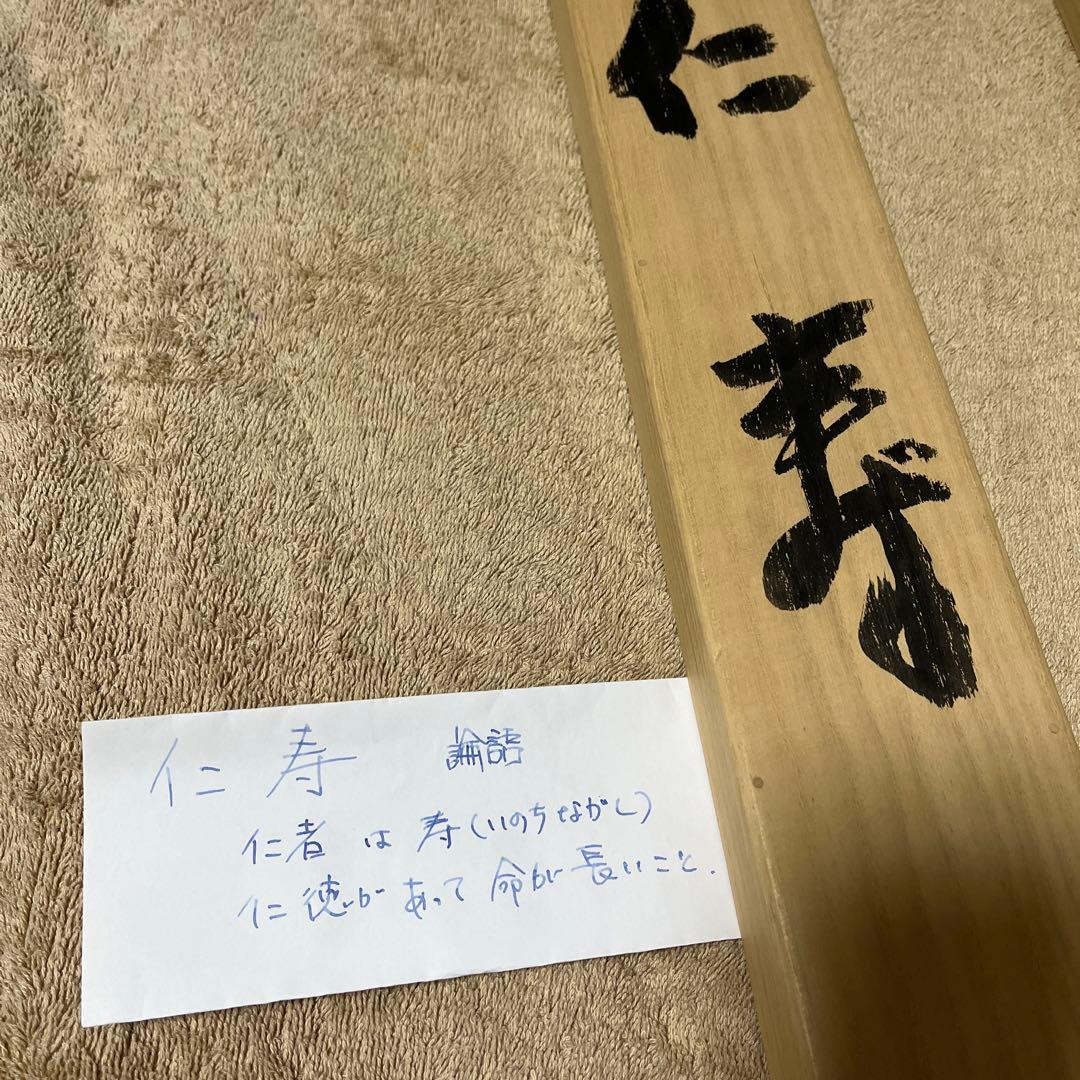 仁寿
仁寿 論語
仁者は寿(いのちながし)
仁徳があって命が長いこと.